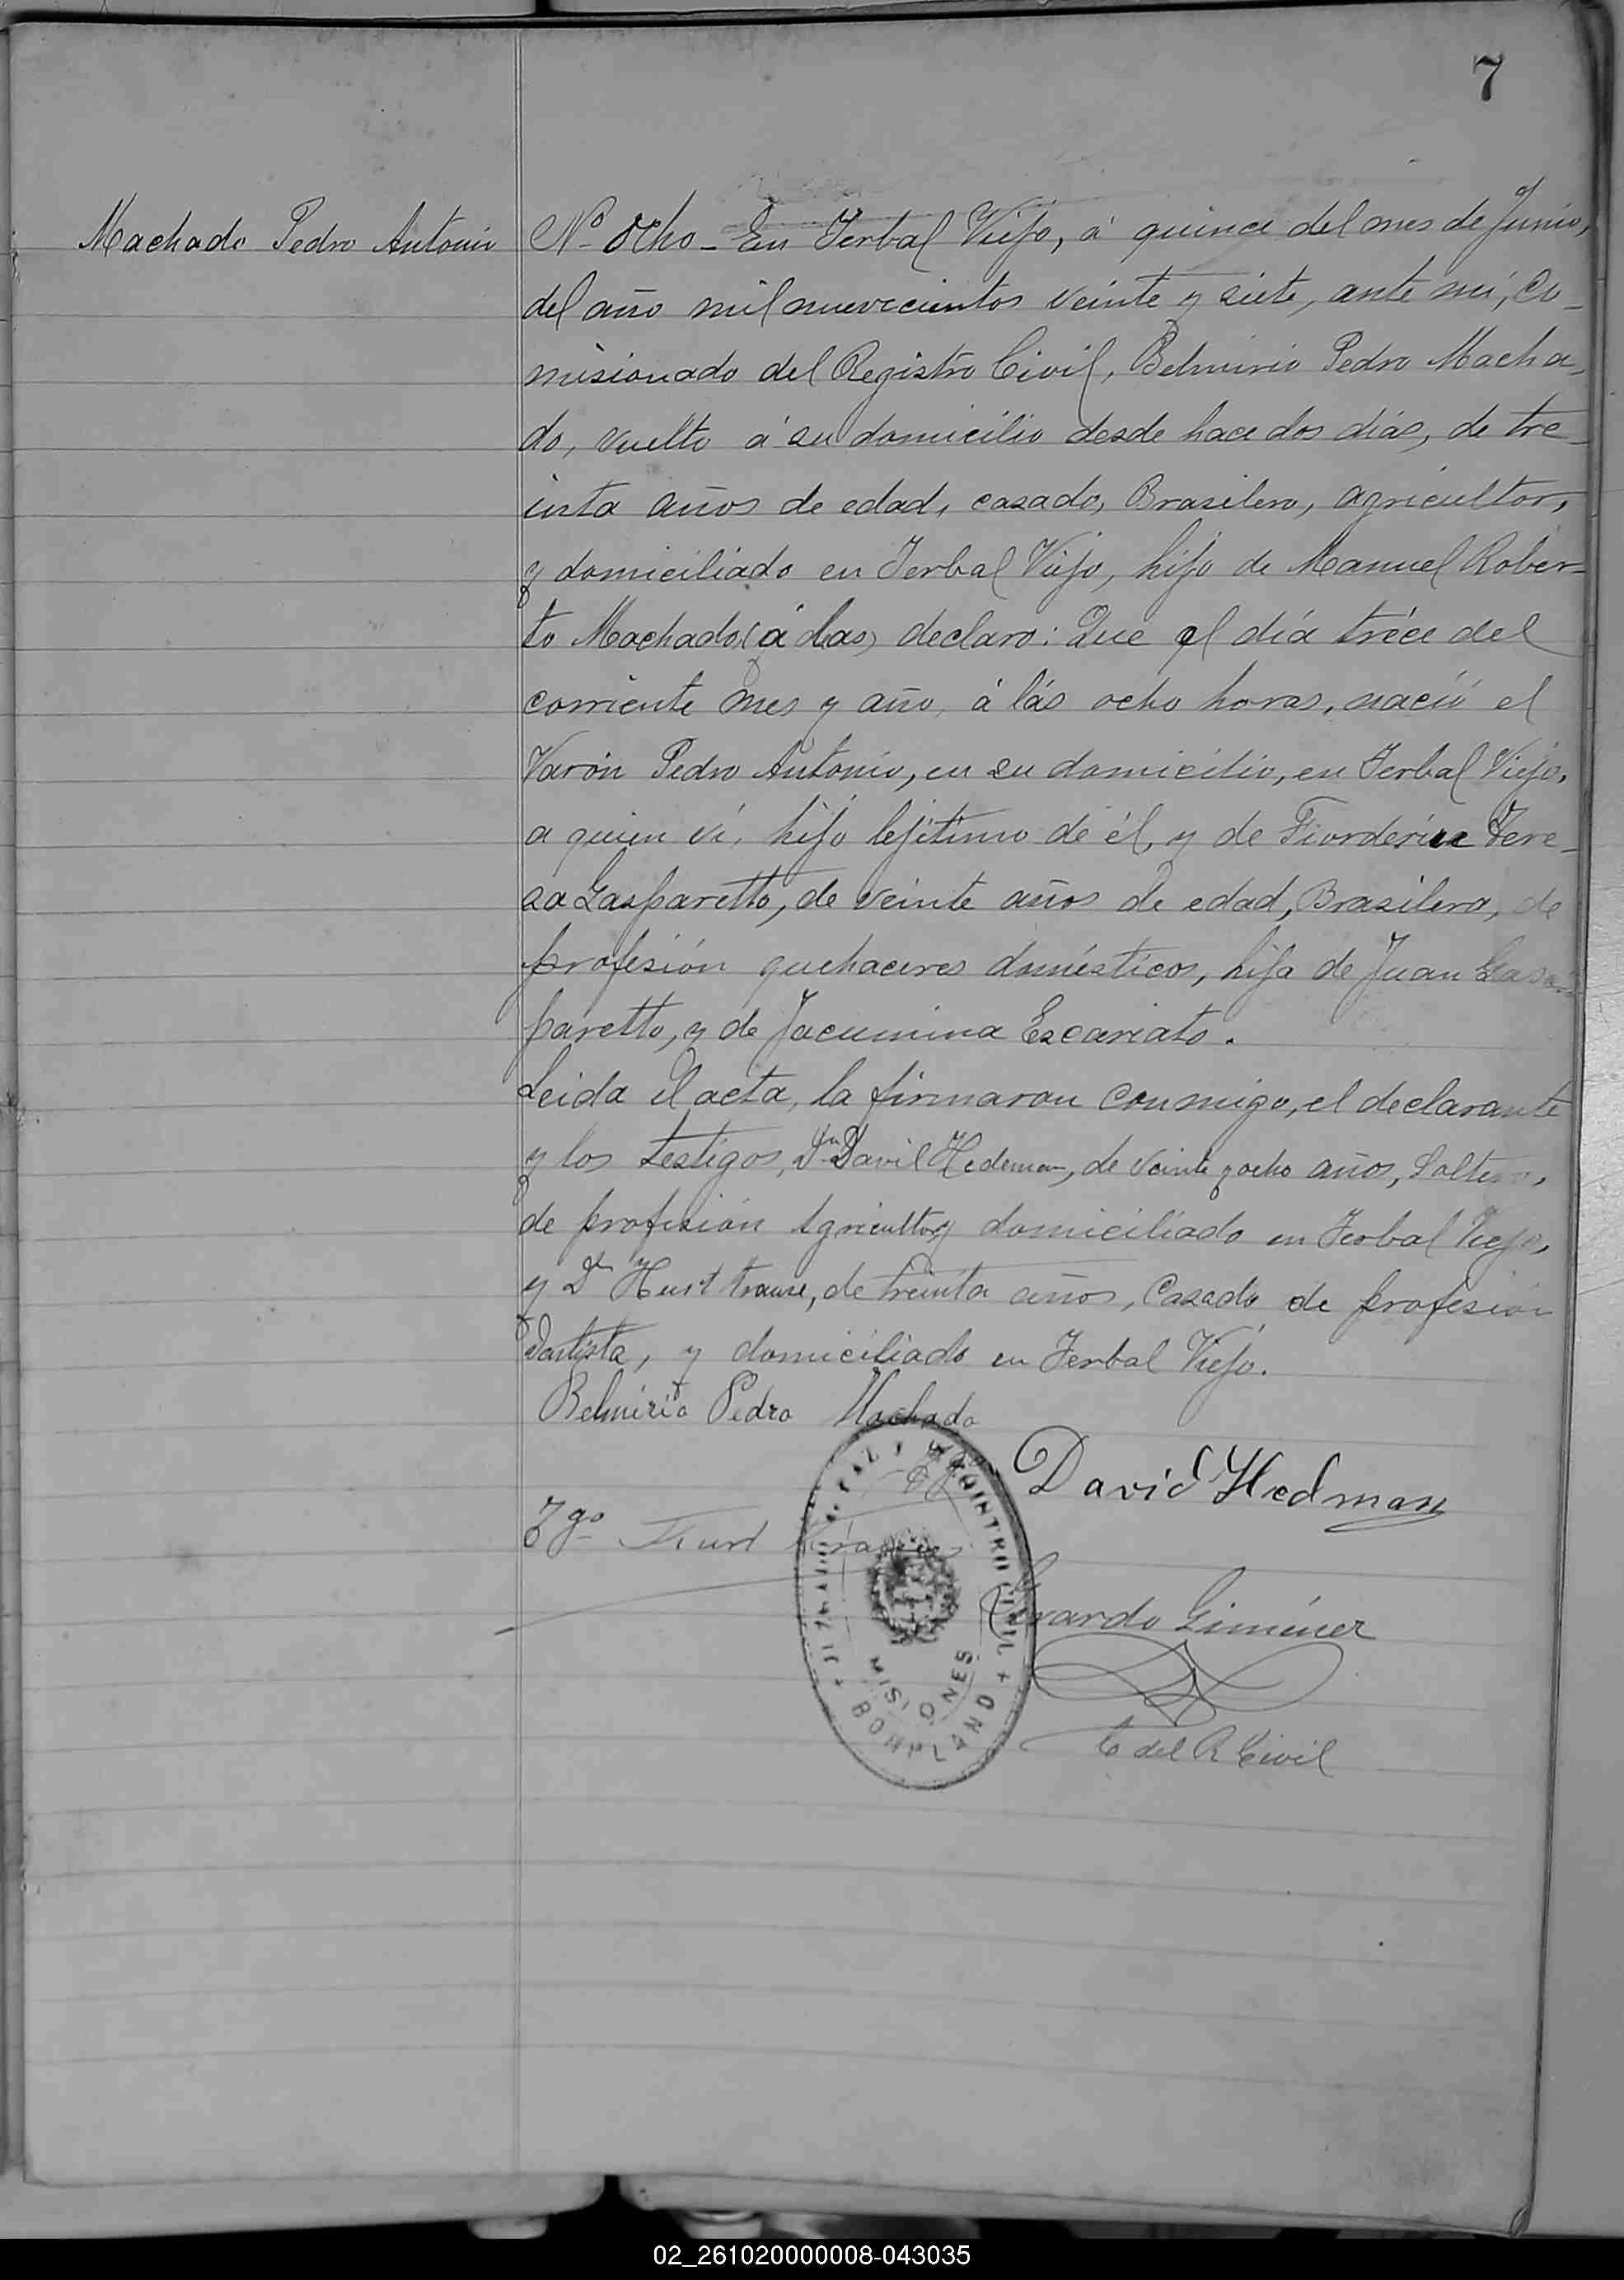 7
Machado Pedro Antonio
Nº Ocho - En Yerbal Viejo, á quince del mes de Junio,
del año mil nuevecientos veinte y siete, ante mi, Co-
misionado del Registro Civil, Belmirio Pedro Macha-
do, vuelto á su domicilio desde hace dos dias, de tre-
inta años de edad, casado, Brasilero, agricultor,
y domiciliado en Yerbal Viejo, hijo de Manuel Rober-
to Machado (á las) declaro: Que el día tréce del
corriente mes y año, á lás ocho horas, nació el
Varón Pedro Antonio, en su domicilio, en Yerbal Viejo,
a quien ví, hijo lejítimo de él, y de Fiorderina Tere-
sa Gasparetto, de veinte años de edad, Brasilera, de
profesión quehaceres domésticos, hija de Juan Gas-
paretto, y de Jacumina Escariato.
Leida el acta, la firmaron conmigo, el declarante
y los testigos, Dn David Hedeman, de veinte y ocho años, Soltero,
de profesión Agricultor, y domiciliado en Yerbal Viejo,
y Dn Kurt Krause, de treinta años, Casado, de profesión
Dentista, y domiciliado en Yerbal Viejo.
Belmirio Pedro Machado
David Hedman
Tgo Kurt Krause
Gerardo Giménez
C del R Civil
JUZGADO DE PAZ Y REGISTRO CIVIL
MISIONES
BONPLAND
02_261020000008-043035